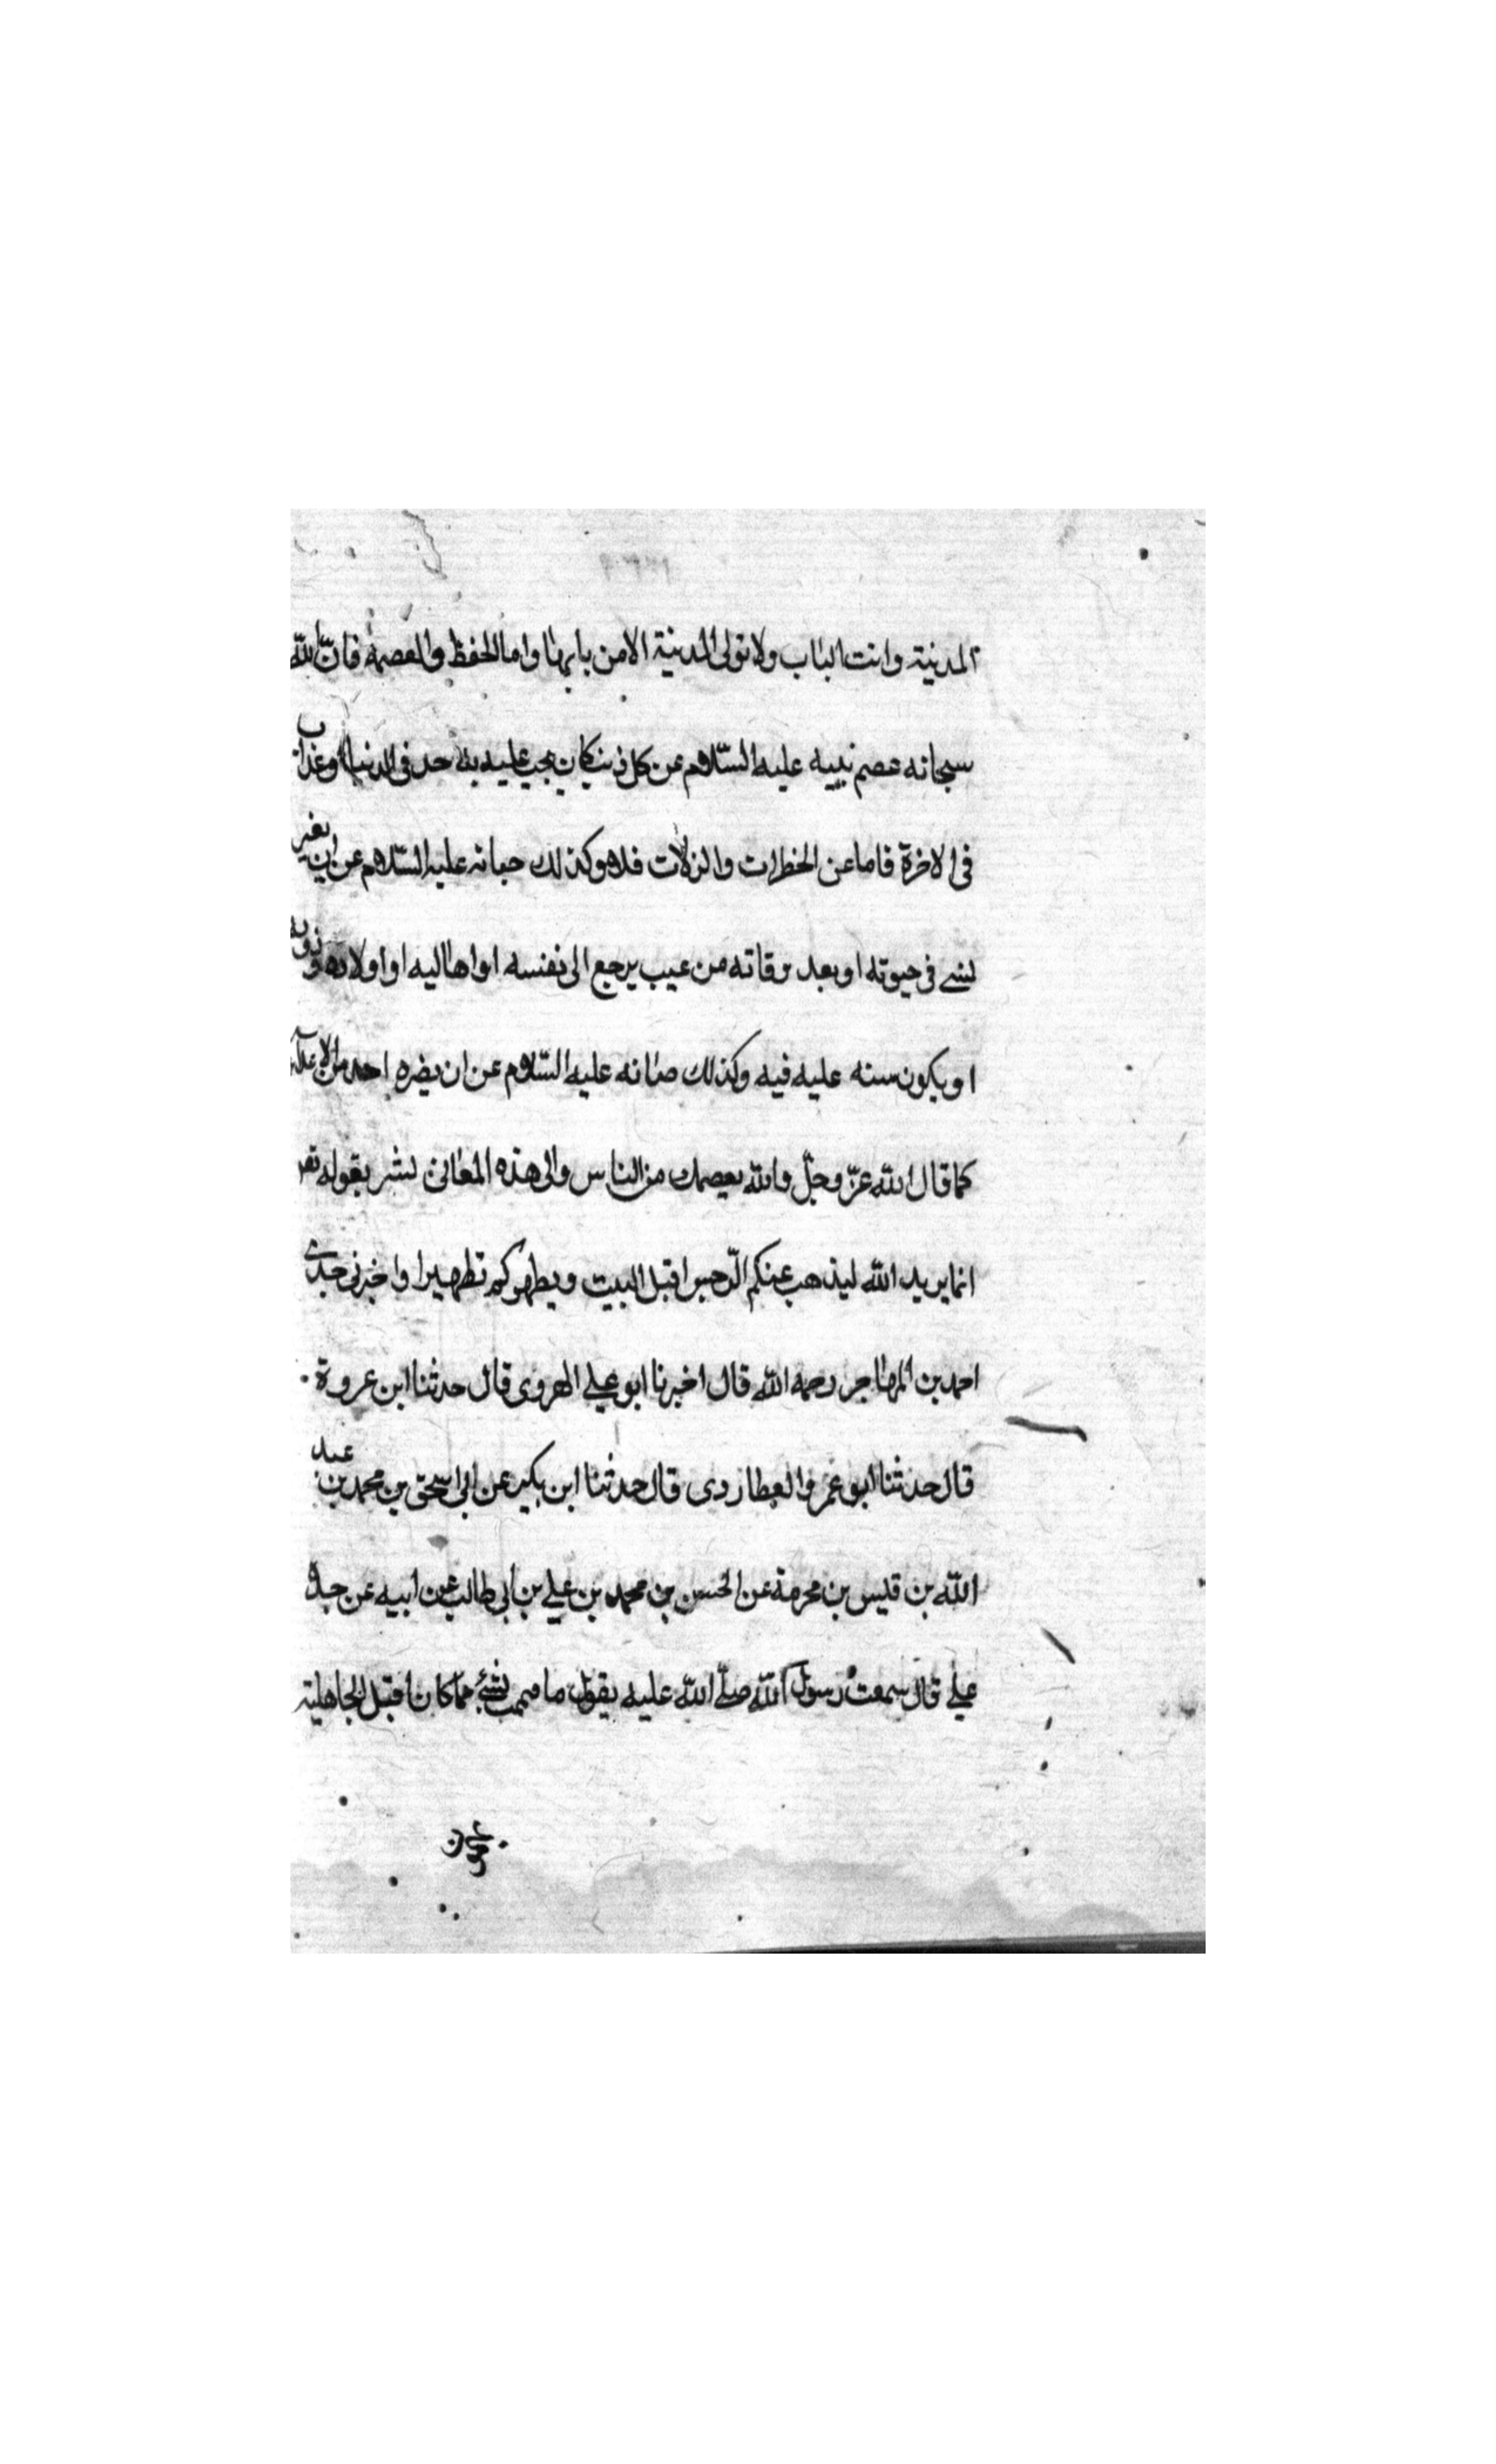 المدنية وانت الباب ولا تولى المدنية الا من بابها واما الحفظ والعصمة فان الله
سبحانه عصم نبيه عليه السلام عن كل ذنب كان يجب عليه به حد فى الدنيا او عذاب
فى الاخرة فاما عن الخطرات والزلات فلا وكذلك عليه السلام عن ان يغير
فى حيوته او بعد وفاته من عيب يرجع الى نفسه او اهاليه او اولاده
او يكون سنه عليه فيه وكذلك صانه عليه السلام عن ان يضره احد من
كما قال الله عز وجل والله يعصمك من الناس والى هذه المعانى يقوله
انما يريد الله ليذهب عنكم الرجس اقبل البيت ويطهركم تطهيرا واخبرنى جدى
احمد بن المهاجر رحمه الله قال اخبرنا ابو على الهروى قال حدثنا ابن عروة
قال حدثنا ابو عمرو العطاردى قال حدثنا ابن بكير عن ابى اسحق بن محمد بن عبد
الله بن قيس بن مخرمة عن الحسن بن محمد بن على بن ابى طالب عن ابيه عن جده
على قال سمعت رسول الله صلى الله عليه يقول ما هممت بشئ مما كان اقبل الجاهلية